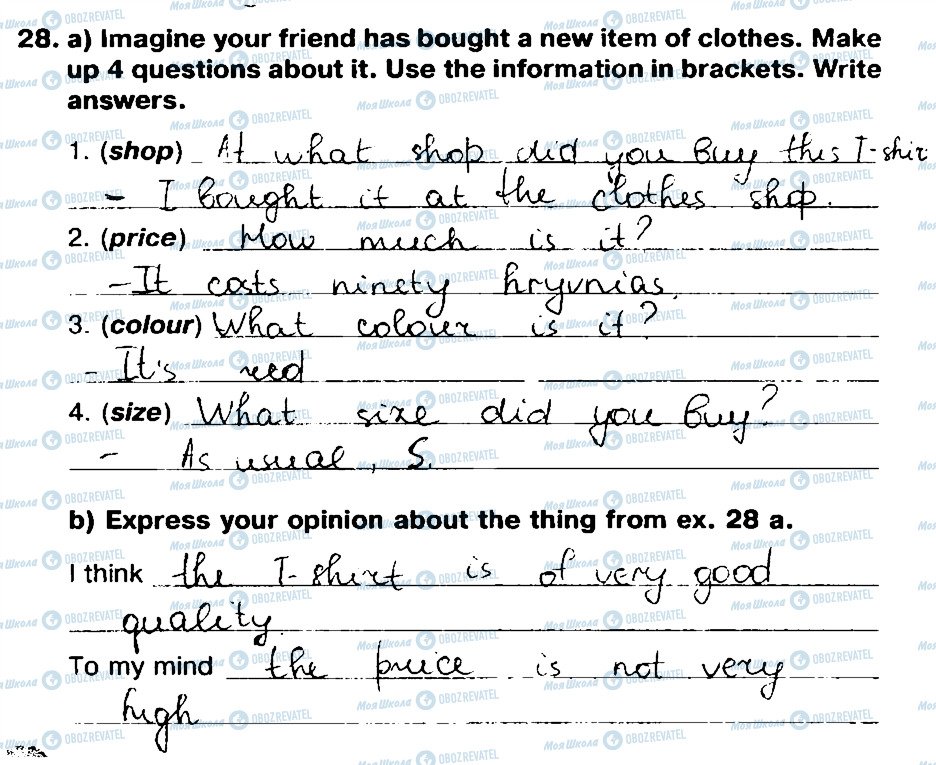 28. a) Imagine your friend has bought a new item of clothes. Make
up 4 questions about it. Use the information in brackets. Write
answers.
1. (shop) At what shop did you buy this T-shir
- I bought it at the clothes shop.
2. (price) How much is it?
- It costs ninety hryvnias.
3. (colour) What colour is it?
- It's red
4. (size) What size did you buy?
- As usual, S.
b) Express your opinion about the thing from ex. 28 a.
I think the T-shirt is of very good
quality.
To my mind the price is not very
high
Моя Школа OBOZREVATEL